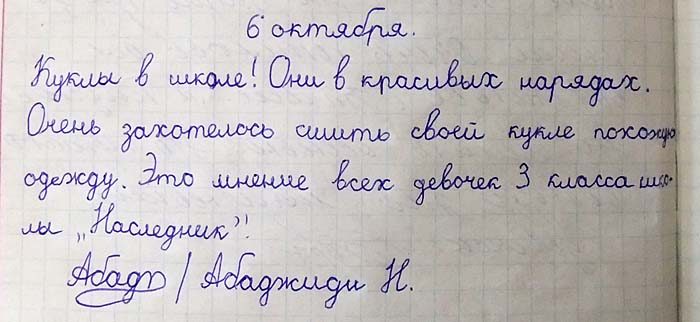 6 октября.
Куклы в школе! Они в красивых нарядах.
Очень захотелось сшить своей кукле похожую
одежду. Это мнение всех девочек 3 класса шко-
лы „Наследник"!
Абадж / Абаджиди Н.